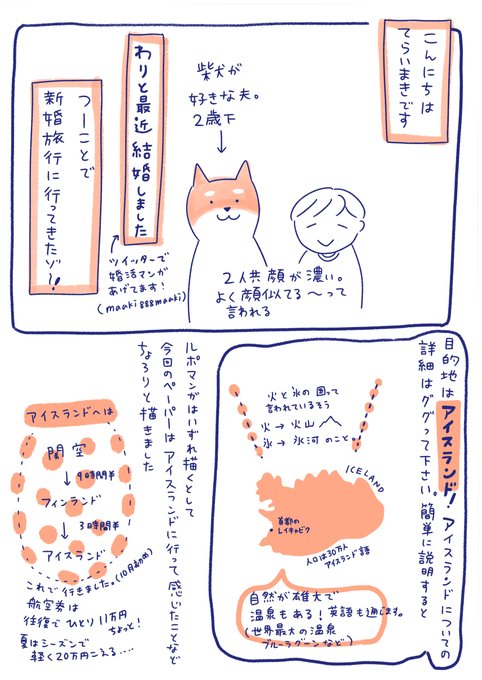 こんにちは
てらいまきです
柴犬が
好きな夫。
2歳下
わりと最近 結婚しました
ツイッターで
婚活マンガ
あげてます!
(maaki888maaki)
つーことで
新婚旅行に行ってきたゾ〜!
2人共 顔が濃い。
よく顔似てる〜って
言われる
目的地はアイスランド!アイスランドについての
詳細はググって下さい。簡単に説明すると
火と氷の国って
言われているそう
火→火山
氷→氷河 のこと。
ICELAND
首都の
レイキャビク
人口は30万人
アイスランド語
自然が雄大で
温泉もある!英語も通じます。
(世界最大の温泉
ブルーラグーンなど)
ルポマンガはいずれ描くとして
今回のペーパーはアイスランドに行って感じたことなど
ちょろりと描きました
アイスランドへは
関空
9時間半
フィンランド
3時間半
アイスランド
これで行きました。(10月初め)
航空券は
往復でひとり11万円
ちょっと!
夏はシーズンで
軽く20万円こえる....